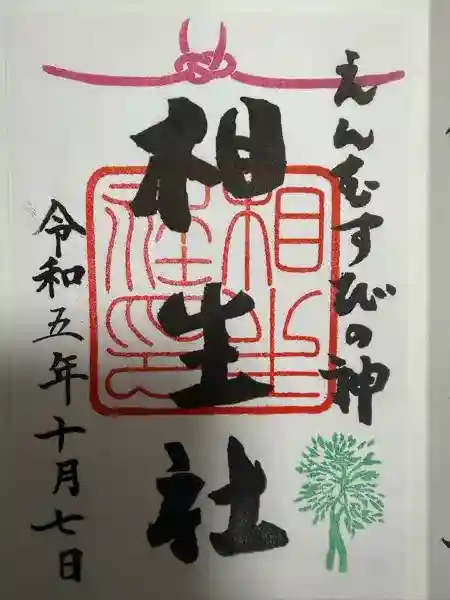 えんむすびの神
相生社
令和五年十月七日